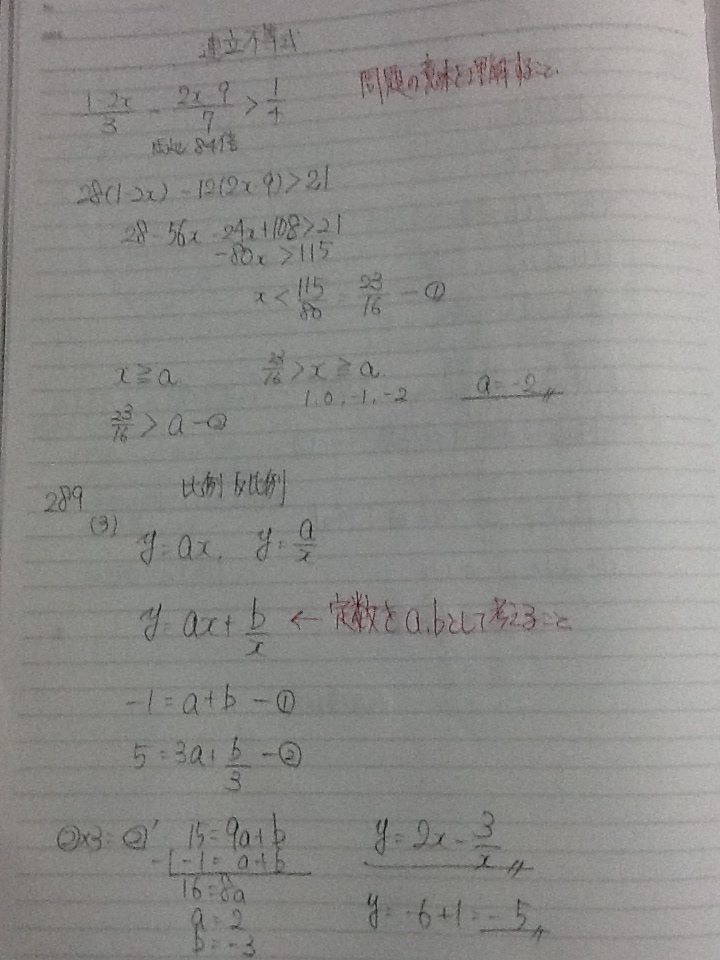 連立不等式
問題の意味を理解すること。
(1-2x)/3 - (2x-9)/7 > 1/4
84倍
28(1-2x) - 12(2x-9) > 21
28 - 56x - 24x + 108 > 21
-80x > 115
x < 115/80 23/16 - ①
x ≧ a 23/16 > x ≧ a
1, 0, -1, -2 a = -2
23/16 > a - ②
289 比例 反比例
(3) y = ax, y = a/x
y = ax + b/x ← 定数をa,bとして考えること
-1 = a + b - ①
5 = 3a + b/3 - ②
②×3 = ②' 15 = 9a + b
-) -1 = a + b
16 = 8a
a = 2
b = -3
y = 2x - 3/x
y = -6 + 1 = -5